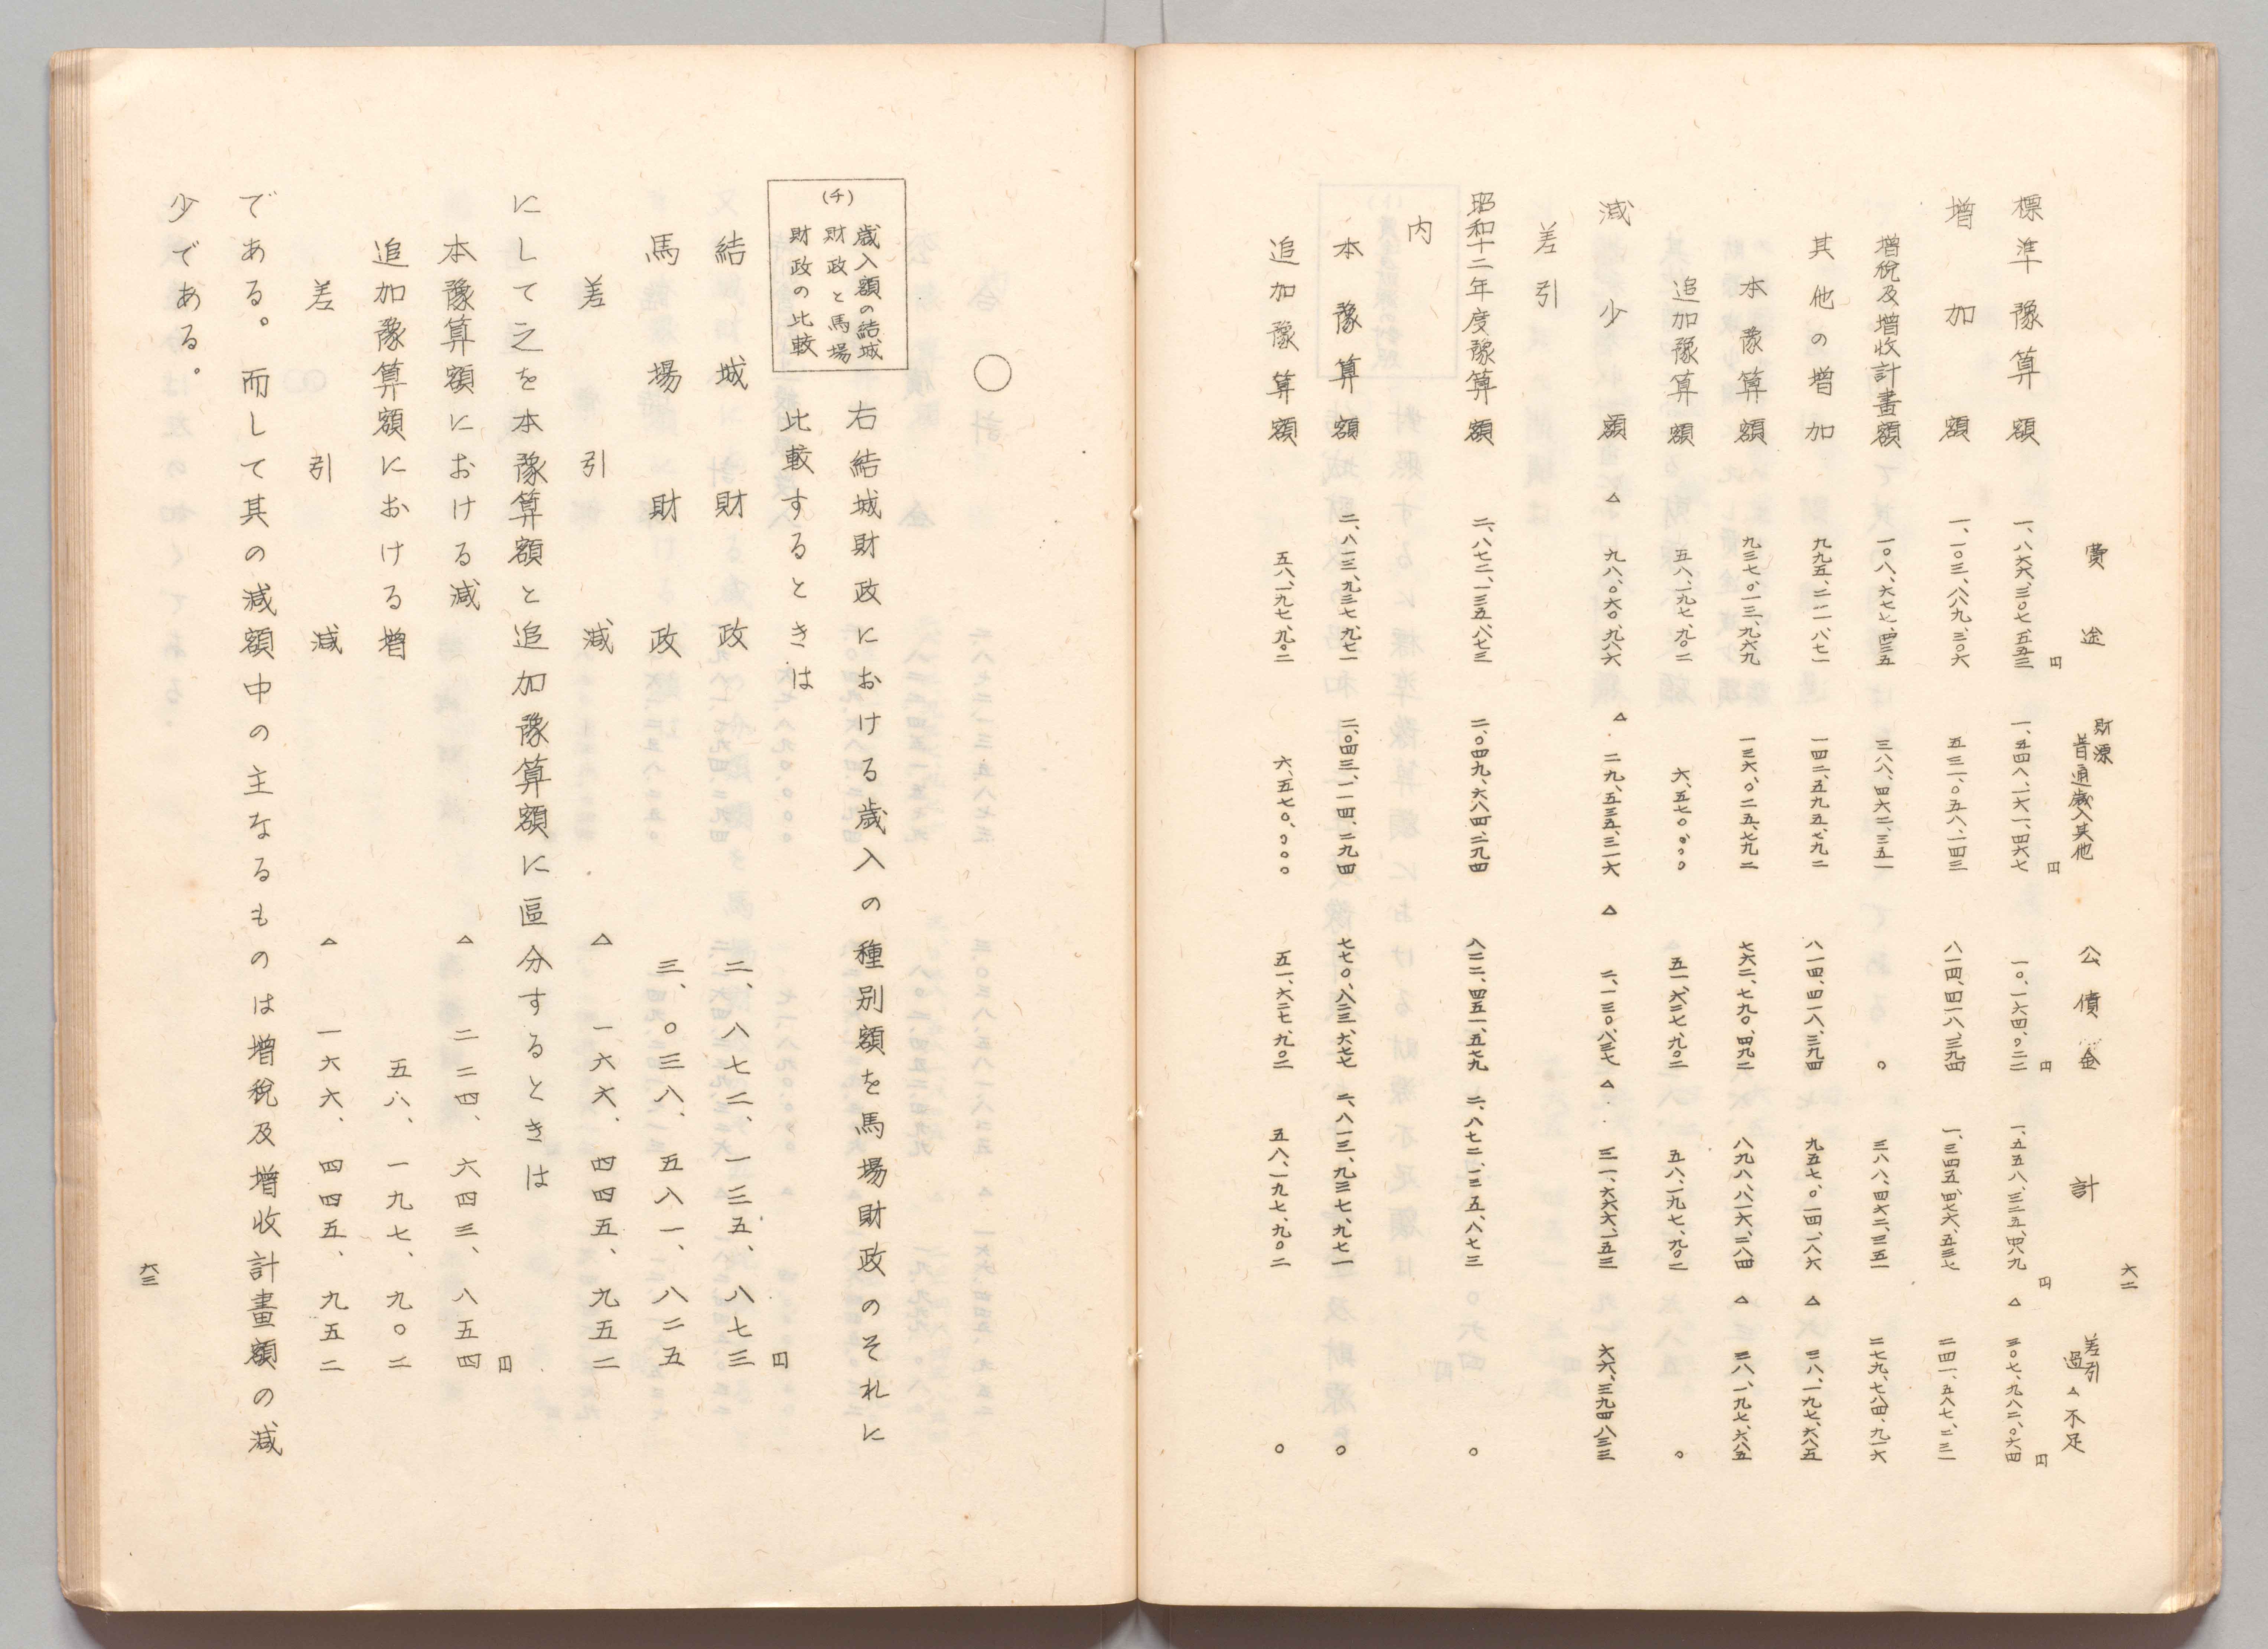 六二
費途 財源 普通歳入其他 公債金 計 差引過△不足
標準豫算額 一、八六六、三〇七、五五三円 一、五四八、一六一、四六七円 一〇、一六四、〇二二円 一、五五八、三二五、四八九円 △三〇七、九八二、〇六四円
増加額 一、一〇三、八八九、三〇六 五三一、〇五八、一四三 八一四、四一八、三九四 一、三四五、四七六、五三七 二四一、五八七、二三一
増税及増收計畫額 一〇八、六七七、四三五 三八八、四六二、三五一 〇 三八八、四六二、三五一 二七九、七八四、九一六
其他の増加 九九五、二一一、八七一 一四二、五九五、七九二 八一四、四一八、三九四 九五七、〇一四、一八六 △三八、一九七、六八五
本豫算額 九三七、〇一三、九六九 一三六、〇二五、七九二 七六二、七九〇、四九二 八九八、八一六、二八四 △三八、一九七、六八五
追加豫算額 五八、一九七、九〇二 六、五七〇、〇〇〇 五一、六二七、九〇二 五八、一九七、九〇二 〇
減少額 △九八、〇六〇、九八六 △二九、五三五、三一六 △二、一三〇、八三七 △三一、六六六、一五三 六六、三九四、八三三
差引
昭和十二年度豫算額 二、八七二、一三五、八七三 二、〇四九、六八四、二九四 八二二、四五一、五七九 二、八七二、一三五、八七三 〇
内
本豫算額 二、八一三、九三七、九七一 二、〇四三、一一四、二九四 七七〇、八二三、六七七 二、八一三、九三七、九七一 〇
追加豫算額 五八、一九七、九〇二 六、五七〇、〇〇〇 五一、六二七、九〇二 五八、一九七、九〇二 〇
○
(チ)
歳入額の結城
財政と馬場
財政の比較
右結城財政における歳入の種別額を馬場財政のそれに
比較するときは
結城財政 二、八七二、一三五、八七三円
馬場財政 三、〇三八、五八一、八二五
差引減 △一六六、四四五、九五二
にして之を本豫算額と追加豫算額に區分するときは
本豫算額における減 △二二四、六四三、八五四円
追加豫算額における増 五八、一九七、九〇二
差引減 △一六六、四四五、九五二
である。而して其の減額中の主なるものは増税及増收計畫額の減
少である。
六三